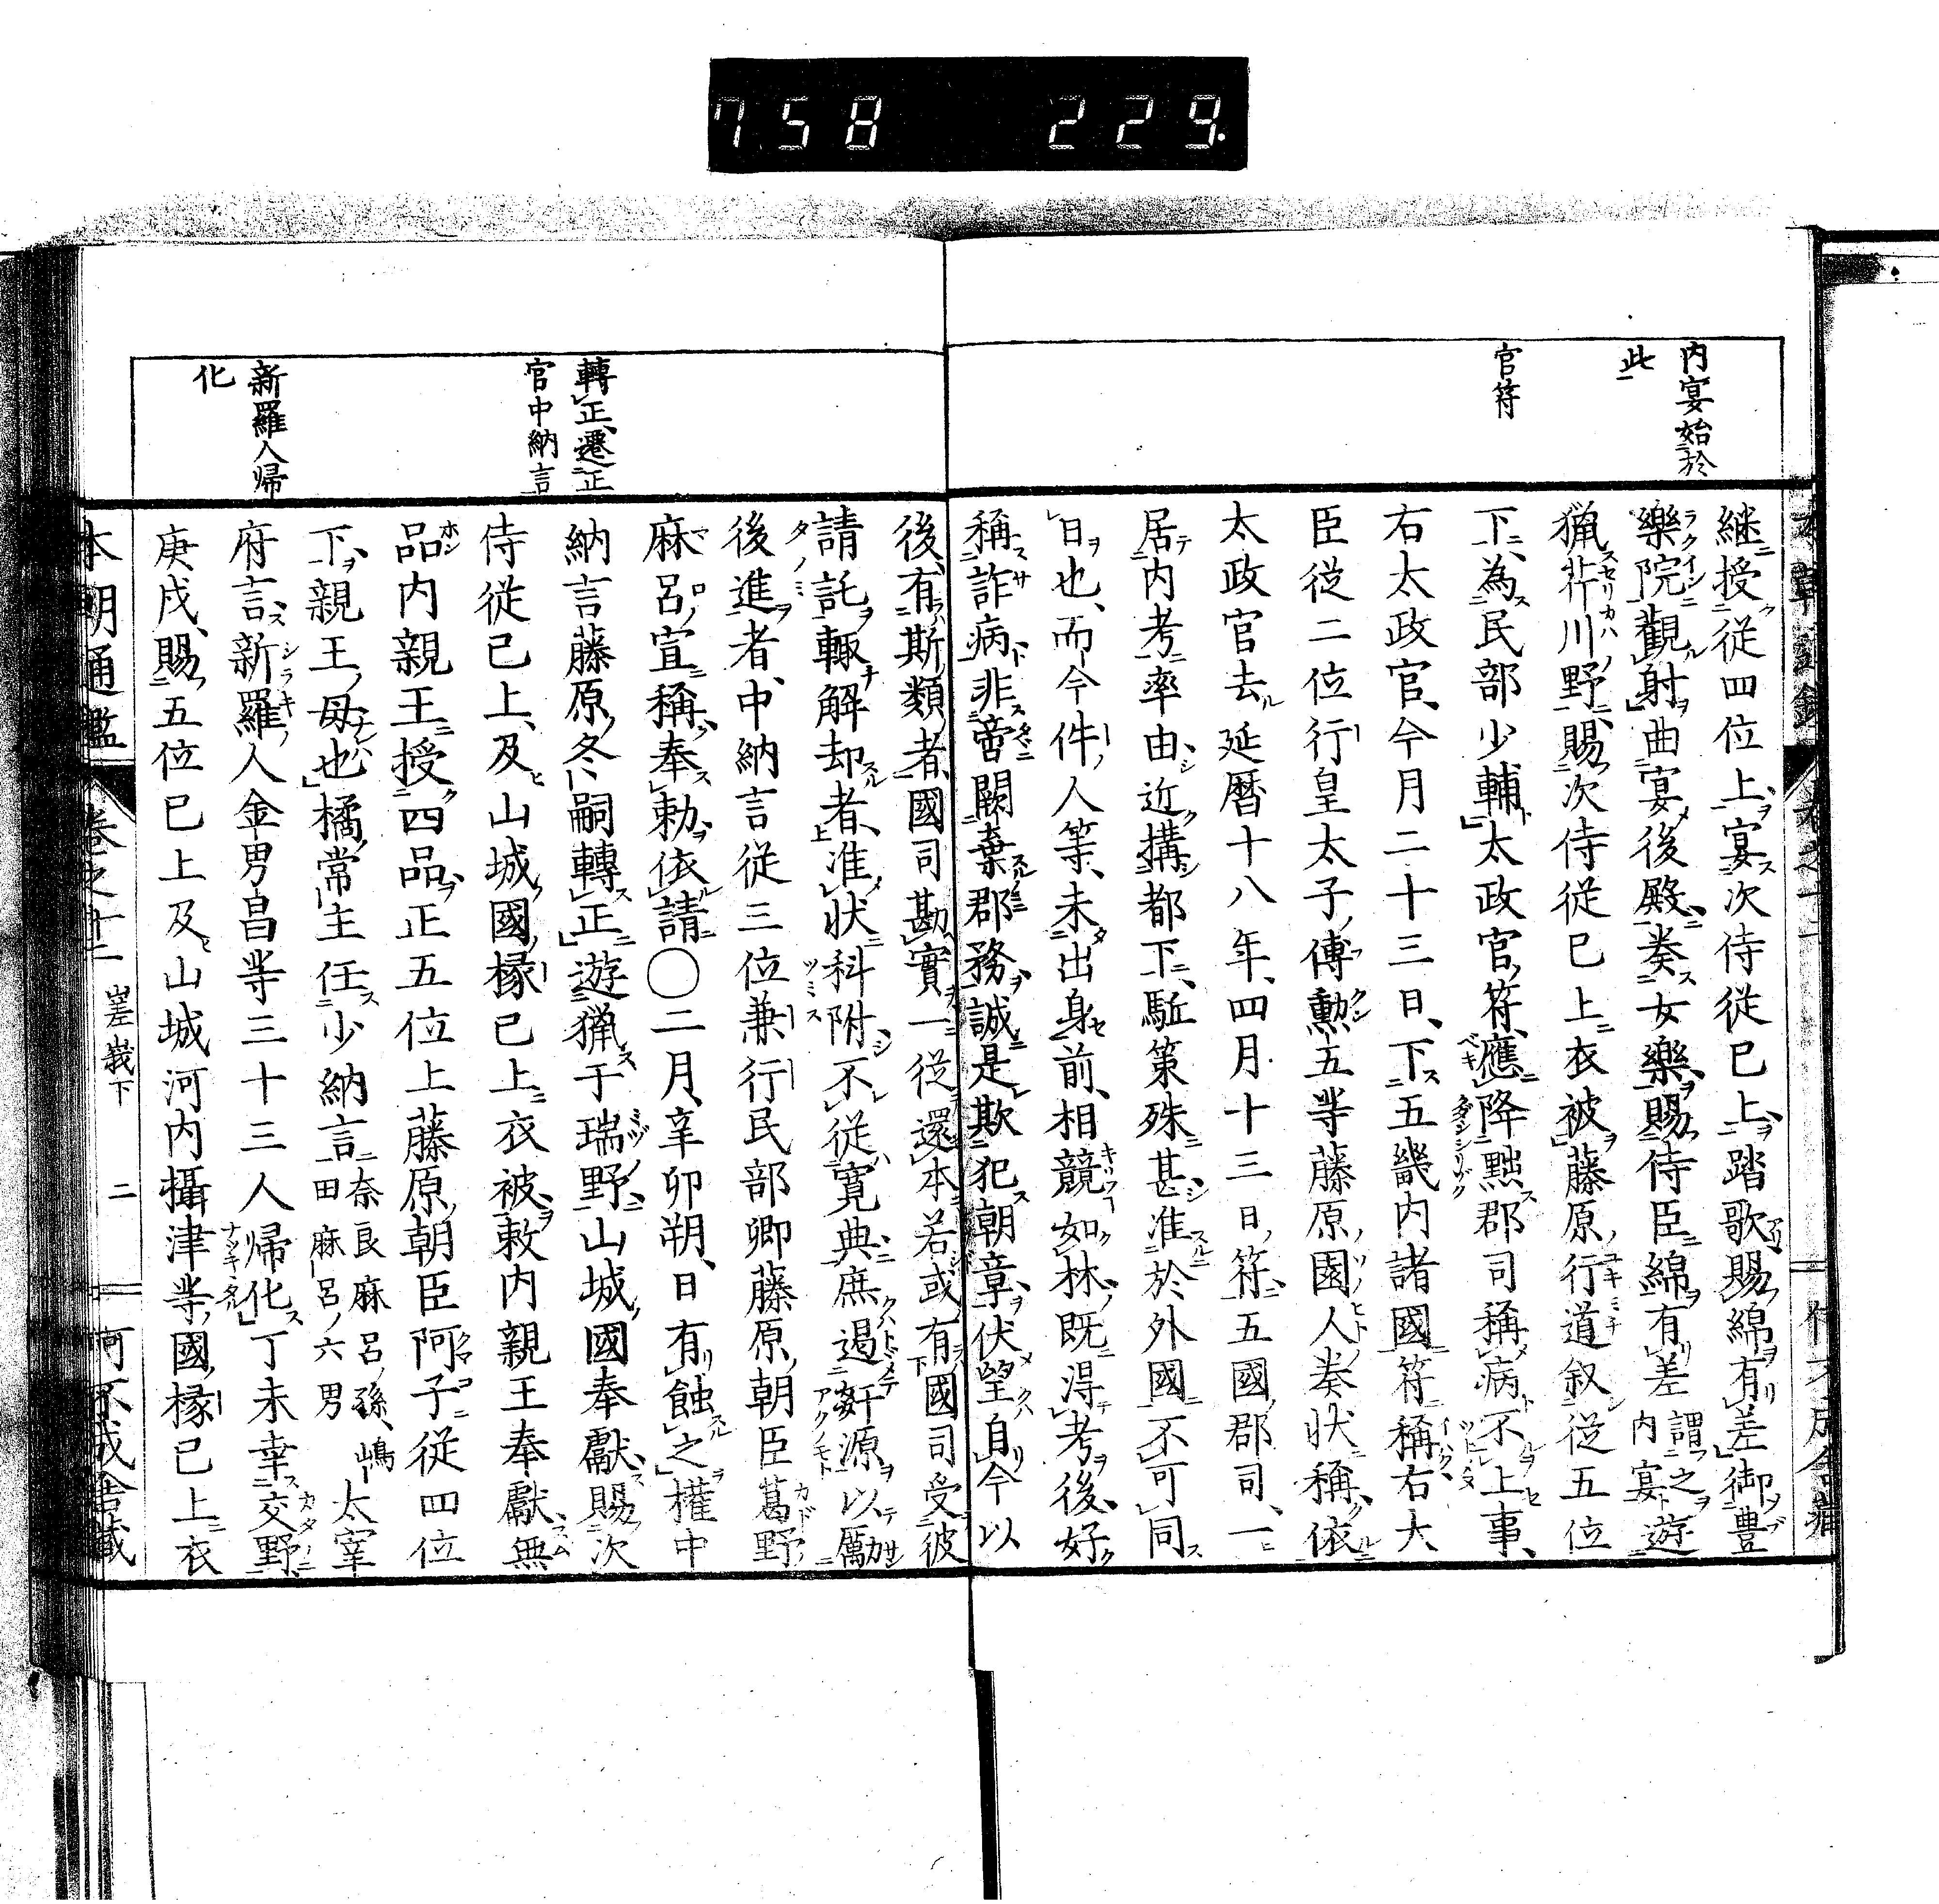 758 229.
内宴始於
此
官符
継授従四位上宴次侍従已上踏歌賜綿有差御豊
樂院觀射曲宴後殿奏女樂賜侍臣綿有差謂之内宴遊
獵芹川野賜次侍従已上衣被藤原行道叙従五位
下為民部少輔太政官符應降黜郡司稱病不上事
右太政官今月二十三日下五畿内諸國符稱右大
臣従二位行皇太子傅勲五等藤原園人奏状稱依
太政官去延暦十八年四月十三日符五國郡司一
居内考率由近搆都下駈策殊甚准於外國不可同
日也而今件人等未出身前相競如林既得考後好
稱詐病非啻闕棄郡務誠是欺犯朝章伏望自今以
轉正遷正
官中納言
新羅人帰
化
後有斯類者國司勘實一従還本若或有國司受彼
請託輙解却者准状科附不従寛典庶遏姧源以厲
後進者中納言従三位兼行民部卿藤原朝臣葛野
麻呂宣稱奉勅依請〇二月辛卯朔日有蝕之權中
納言藤原冬嗣轉正遊獵于瑞野山城國奉獻賜次
侍従已上及山城國掾已上衣被敕内親王奉獻無
品内親王授四品正五位上藤原朝臣阿子従四位
下親王母也橘常主任少納言奈良麻呂孫嶋田麻呂六男太宰
府言新羅人金男昌等三十三人帰化丁未幸交野
庚戌賜五位已上及山城河内攝津等國掾已上衣
本朝通鑑 卷之廿二 嵯峨下 二